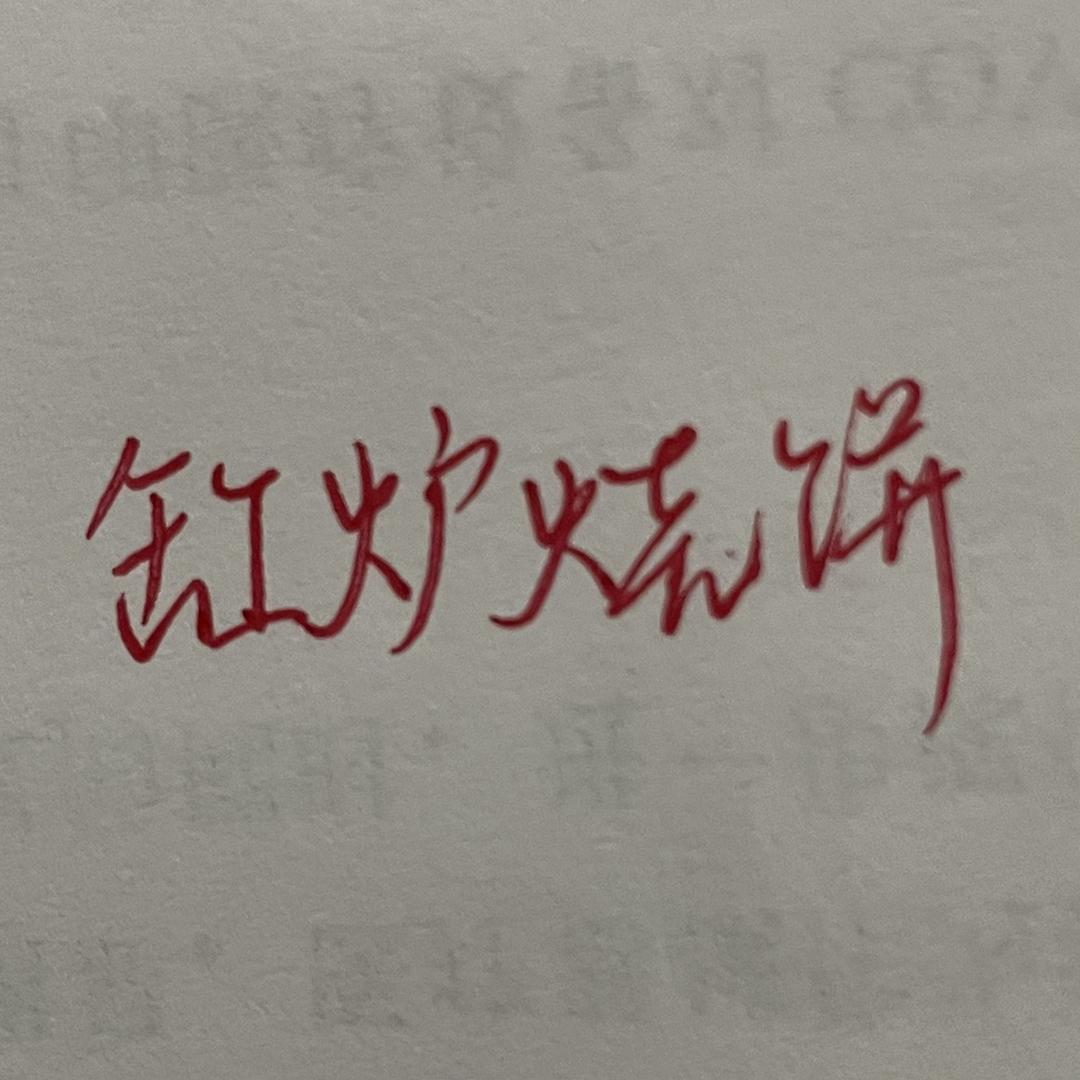 缸炉烧饼